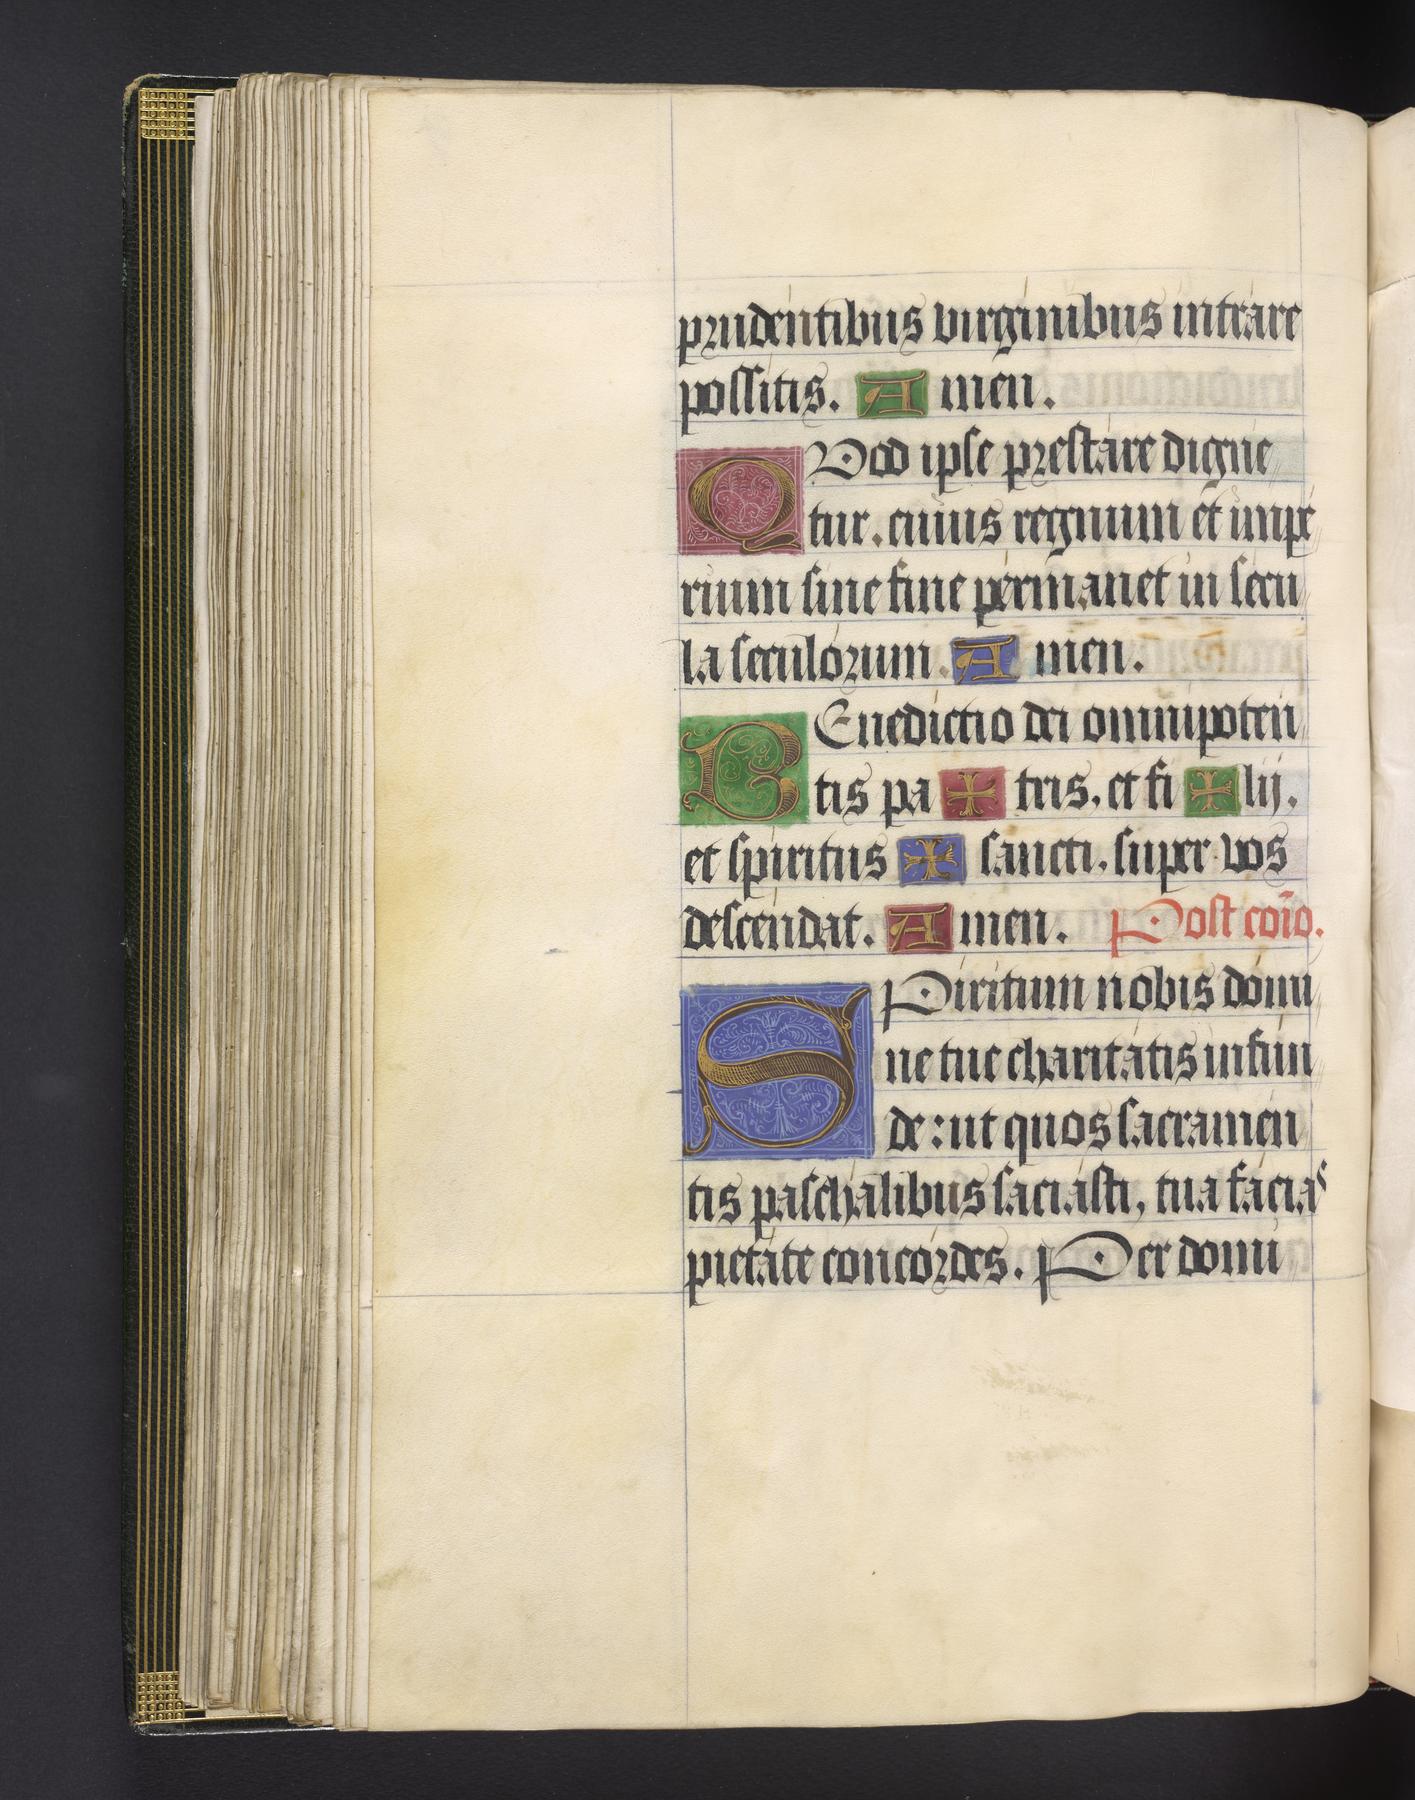 prudentibus virginibus intrare
possitis. Amen.
QVod ipse prestare digne
tur. cuius regnum et impe
rium sine fine permanet in secu
la seculorum. Amen.
BEnedictio dei omnipoten
tis pa ✠ tris. et fi ✠ lij.
et spiritus ✠ sancti. super vos
descendat. Amen. Post coīo.
SPiritum nobis domi
ne tue charitatis infun
de: ut quos sacramen
tis paschalibus saciasti, tua facias
pietate concordes. Per domi